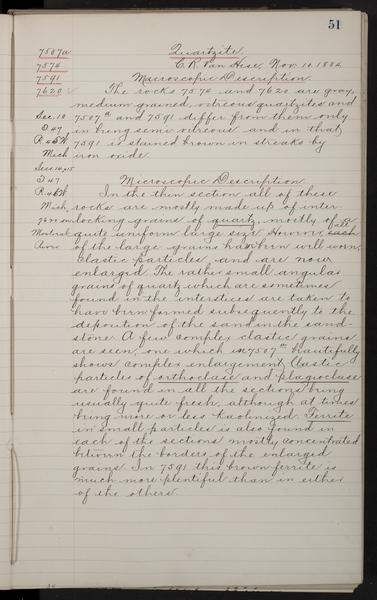 51
7507a Quartzite.
7574 C. R. Van Hise, Nov. 10, 1884
7591 Macroscopic Description.
7620 The rocks 7574 and 7620 are gray,
medium grained, vitreous quartzites and
Sec. 10 7507a and 7591 differ from them only
T. 47 in being semi vitreous and in that
R. 45W 7591 is stained brown in streaks by
Mich iron oxide.
T. 47 Microscopic Description
R. 46W In the thin section all of these
Mich, rocks are mostly made up of inter-
locking grains of quartz, mostly of a
Montreal quite uniform large size. However, all
River of the large grains have been well worn,
clastic particles, and are now
enlarged. The rather small angular
grains of quartz which are sometimes
found in the interstices are taken to
have been formed subsequently to the
deposition of the sand in the sand-
stone. A few complex clastic grains
are seen, one which in 7507a beautifully
shows complex enlargement. Clastic
particles of orthoclase and plagioclase
are found in all the sections being
usually quite fresh, although at times
being more or less kaolinized. Ferrite
in small particles is also found in
each of the sections mostly concentrated
between the borders of the enlarged
grains. In 7591 this brown ferrite is
much more plentiful than in either
of the others.